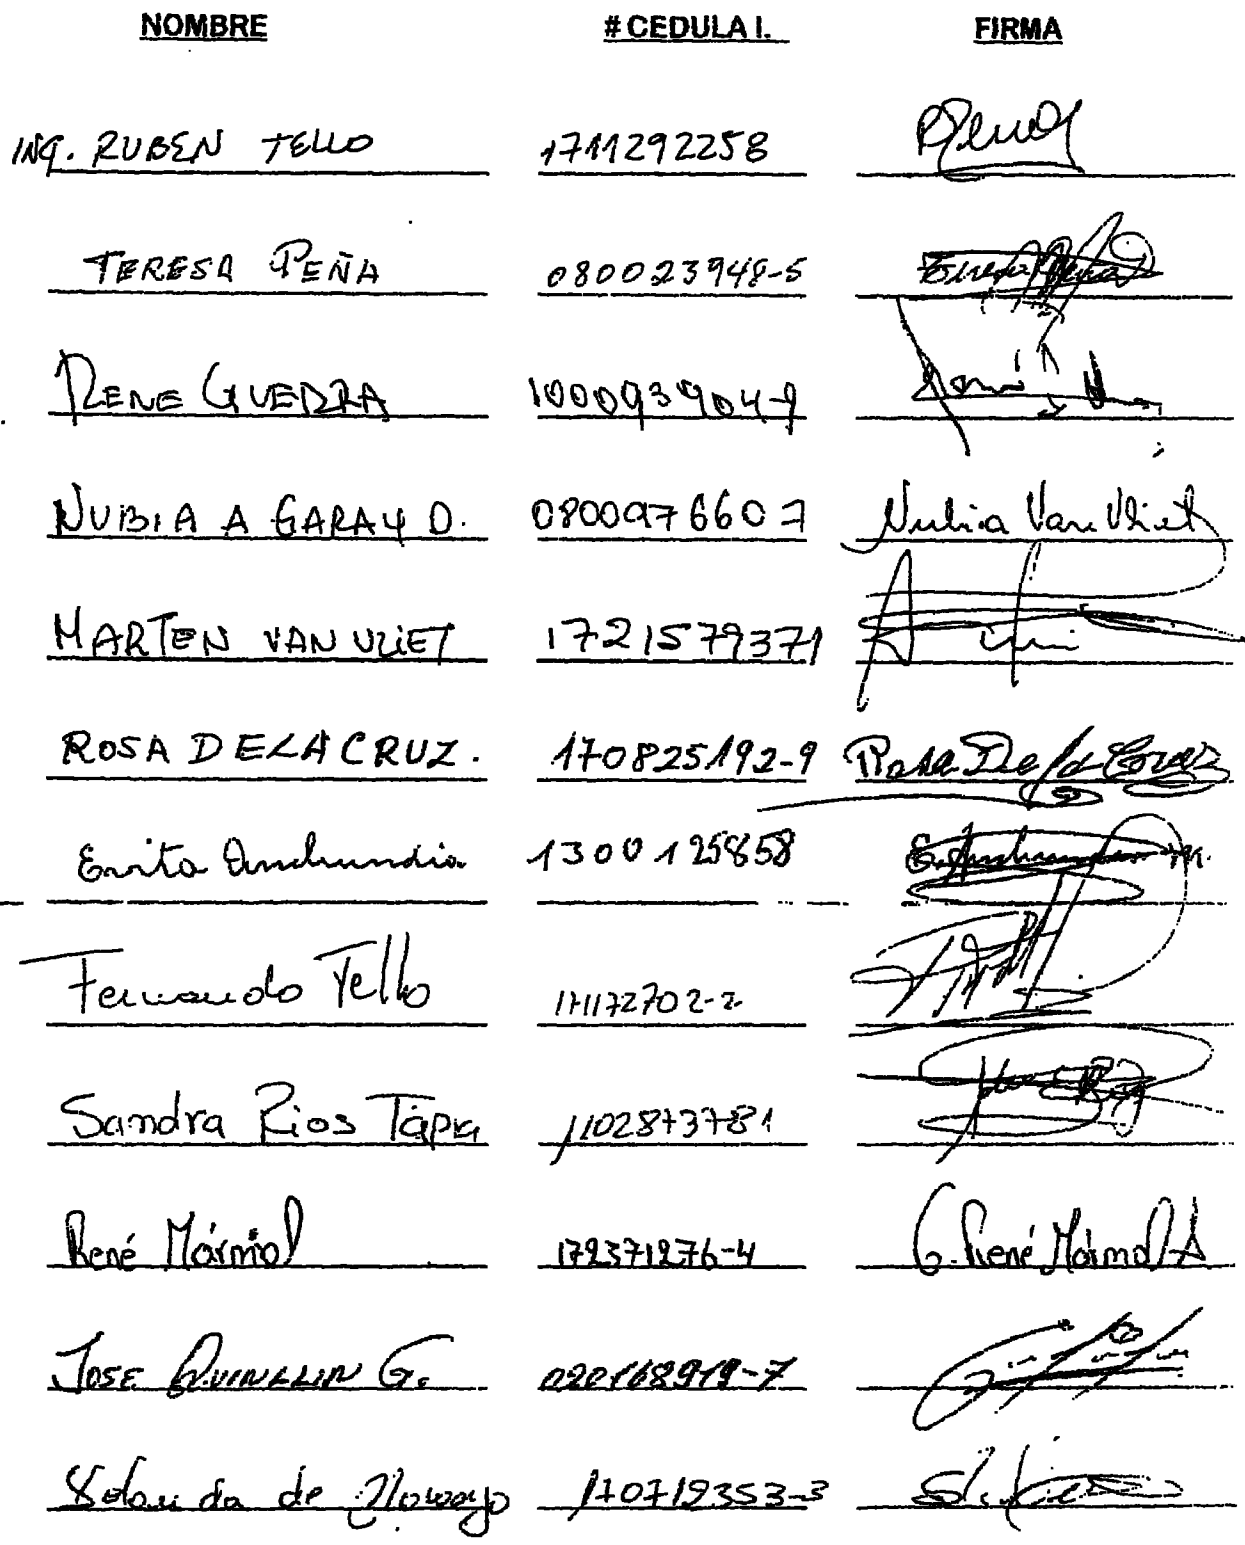 NOMBRE # CEDULA I. FIRMA
ING. RUBEN TELLO 1711292258
TERESA PEÑA 080023948-5 Teresa Peña
RENE GUERRA 100093904-9
NUBIA A GARAY D. 0800976607 Nubia Van Vliet
MARTEN VAN VLIET 1721579371
ROSA DE LA CRUZ. 170825192-9 Rosa De la Cruz
Enita Anchundia 1300125858 E. Anchundia M.
Fernando Tello 171172702-2
Sandra Rios Tapia 1102873781
René Mármol 172371276-4 G. René Mármol A
JOSE QUINLLIN G. 020168919-7
Yolanda de 170719353-3